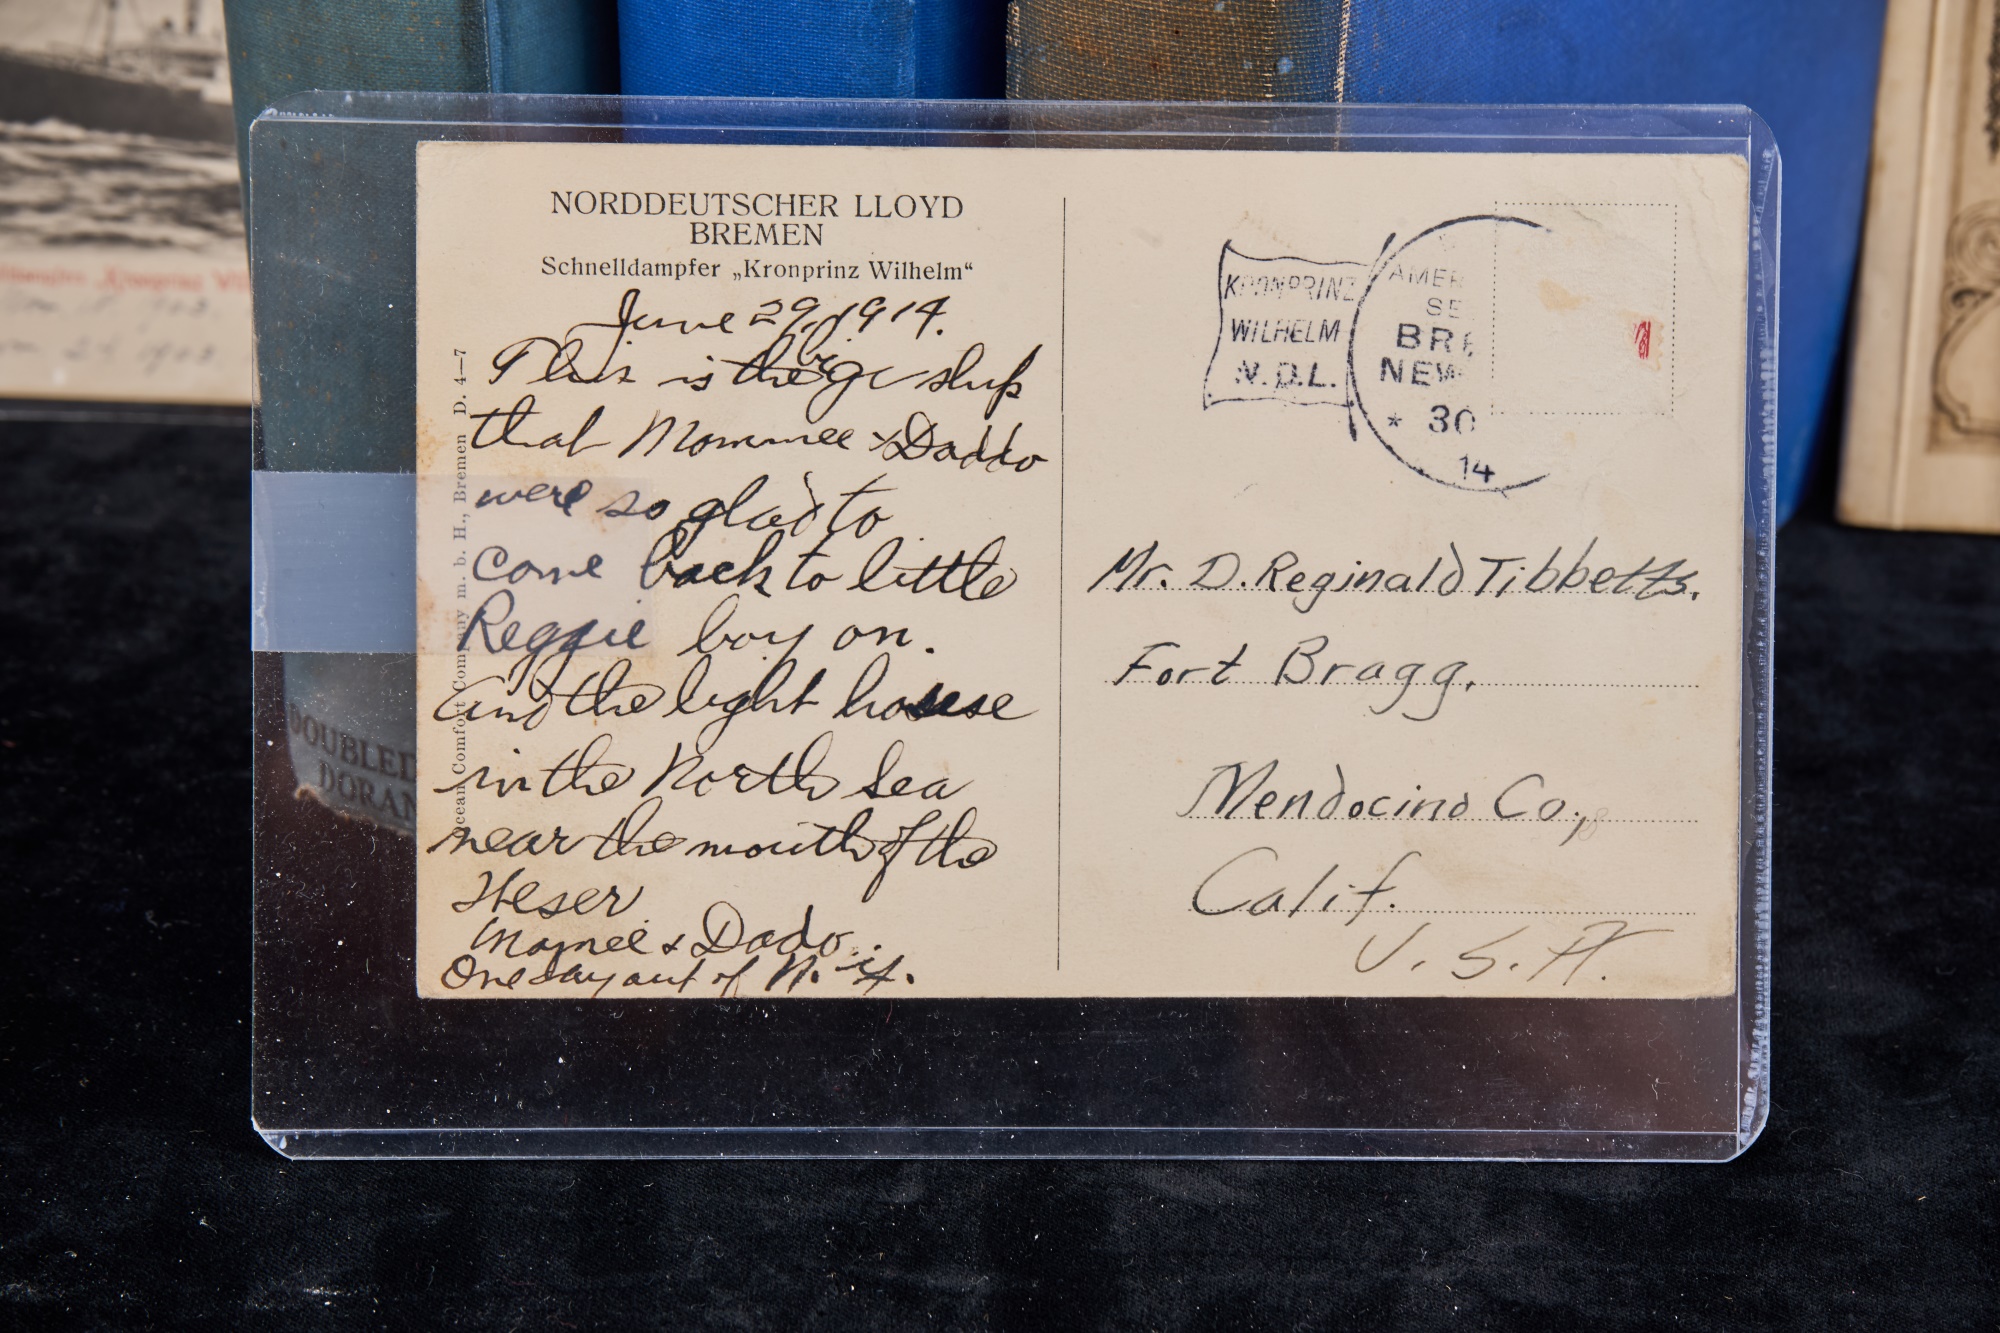 NORDDEUTSCHER LLOYD
BREMEN
Schnelldampfer „Kronprinz Wilhelm“
June 29, 1914.
This is the big ship
that Mommee & Daddo
were so glad to
come back to little
Reggie boy on.
and the light house
in the North Sea
near the mouth of the
Weser.
Momee & Dado.
One day out of N. Y.
Ocean Comfort Company m. b. H., Bremen D. 4—7
KRONPRINZ
WILHELM
N.D.L.
AMER
SE
BRE
NEW
* 30
14
Mr. D. Reginald Tibbetts.
Fort Bragg,
Mendocino Co.,
Calif.
U. S. A.
DOUBLED
DORAN